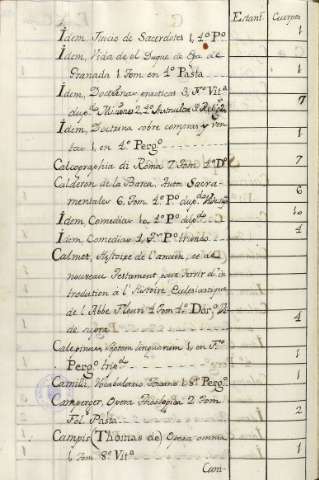 Estant. Cuerpos
Idem, Juicio de Sacerdotes 1, 4.º P.º 1
Idem, Vida de el Duque de
Granada 1 Tom. en 4.º Pasta 1
Idem, Doctrinas practicas 3, Vit.ª 7
Idem, Doctrina sobre compras y ven-
tas 1, en 4.º Perg.º 1
Calcographia di Roma 7 Tom. 7
Calderon de la Barca, Autos Sacra-
mentales 6 Tom. 4.º P.º dup. 6
Idem Comedias 10, 4.º P.º dup. 10
Idem Comedias 1, P.º 1
Calmet, Histoire de l'ancien, et du
nouveau Testament pour servir d'in-
troduction à l'Histoire Eclesiastique
de l'Abbe Fleuri 4 Tom. 4.º 4
de supra
Calepinus, Septem linguarum 1, en F.º
Perg.º 1
Camilli, Vocabulario 1, 8.º Perg.º 1
Camperger, Opera 2 Tom.
Fol. Pasta 2
Campis (Thomas de) Opera omnia
1, Tom. 8.º Vit.ª 1
Cam-